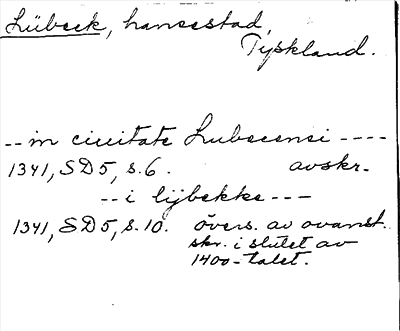 Lübeck, hansestad,
Tyskland.
--in ciuitate Lubecensi ----
1341, SD5, s.6. avskr.
--i lijbekke---
1341, SD5, s.10. övers. av ovanst.
skr. i slutet av
1400-talet.